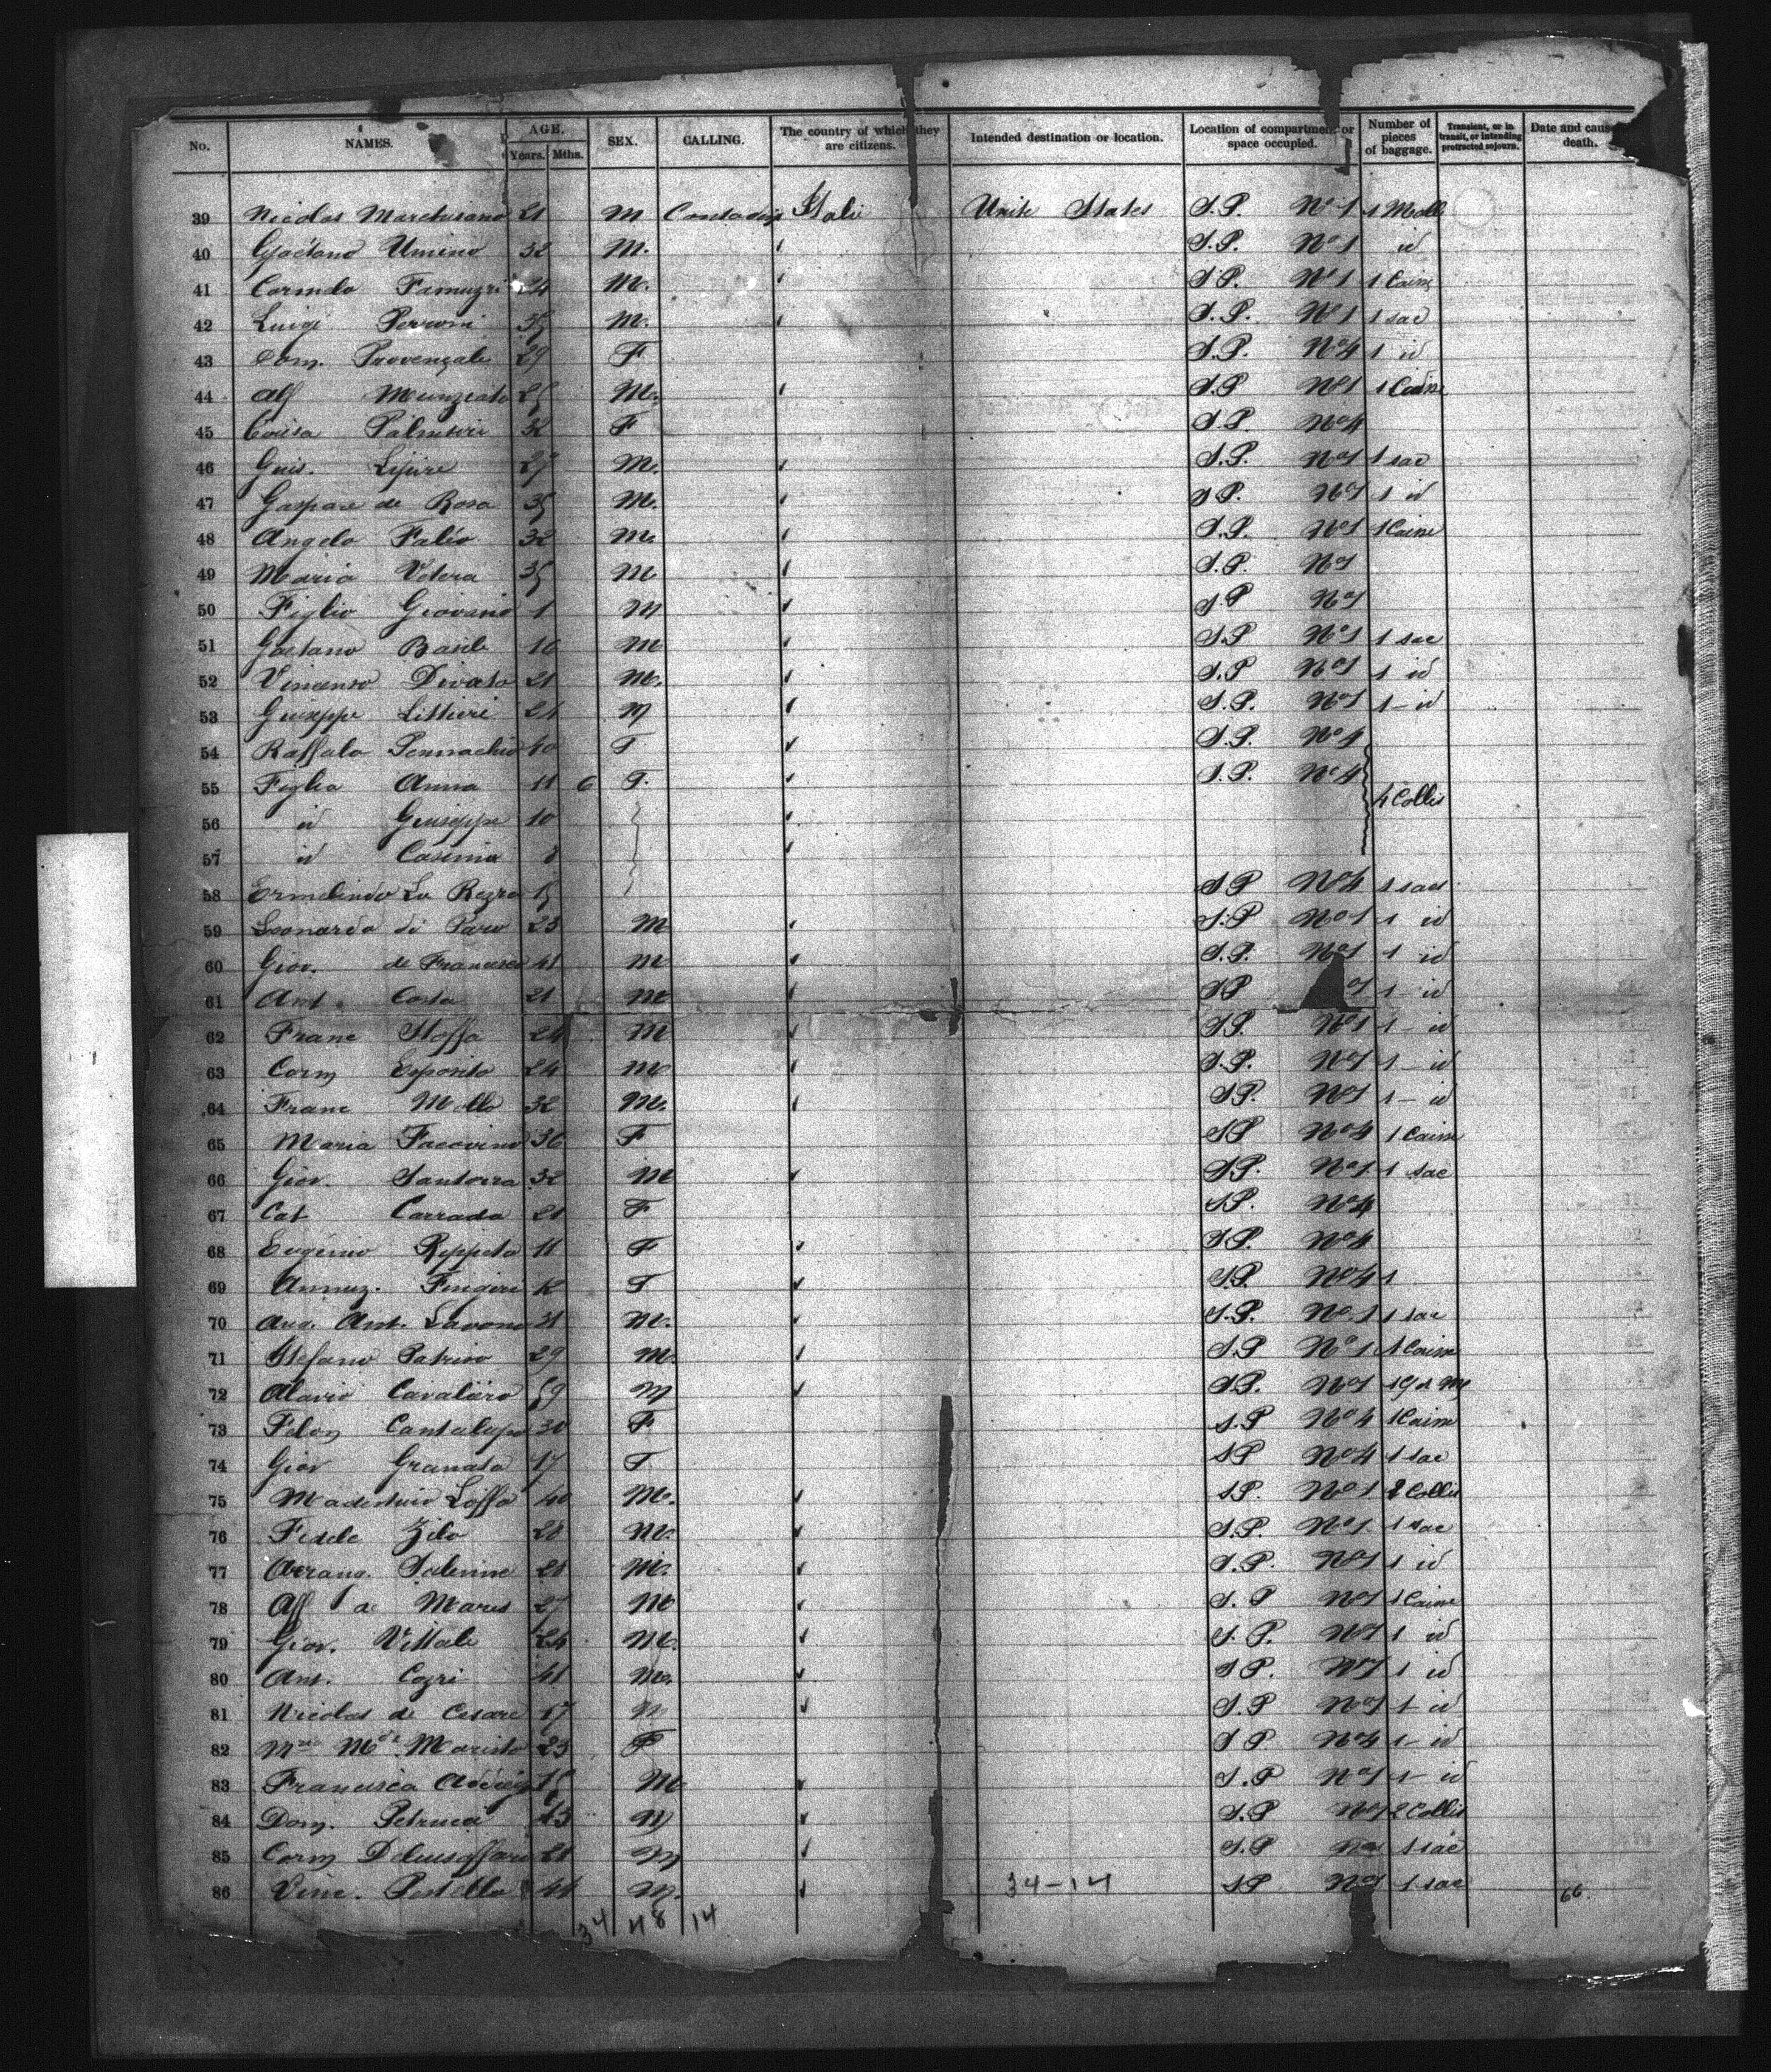 No. NAMES. AGE. Years. Mths. SEX. CALLING. The country of which they are citizens. Intended destination or location. Location of compartment or space occupied. Number of pieces of baggage. Transient, or in transit, or intending protracted sojourn. Date and cause death.
39 Nicolas 21 M Contadin Itali Unite States S.P. No 1 1 Malle
40 Gaetano Umino 32 M. S.P. No 1 id
41 24 M. S.P. No 1 1 Caisse
42 Luigi Perroni 35 M. S.P. No 1 1 sac
43 Dom. Provenzale 29 F S.P. No 4 1 id
44 Alf 25 M. S.P No 1 1 Caisse
45 Palmieri 32 F S.P. No 4
46 Guis. 27 M. S.P. No 1 1 sac
47 Gaspare de Rosa 35 M. S.P. No 1 1 id
48 Angelo Falio 32 M. S.P. No 1 1 Caisse
49 Maria Vetera 35 M S.P. No 1
50 Figlio Giovani 1 M S.P No 1
51 Gaetano Basile 16 M S.P No 1 1 sac
52 Vincenso Divato 21 M. S.P No 1 1 id
53 Guiseppe Littieri 21 M S.P. No 1 1 - id
54 Raffala Pennachio 40 F S.P. No 4
55 Figlia Anna 11 6 F. S.P. No 4 4 Collis
56 id Guiseppe 10
57 id Casimia 8
58 Ermelindo La 15 S P No 4 1 sacs
59 Leonardo di 23 M S.P No 1 1 id
60 Giov. de Francesco 41 M S.P. No 1 1 id
61 Ant. Costa 21 M S P 1 - id
62 Franc Staffa 24 M S.P. No 1 1 - id
63 Carm Esposito 24 M S.P. No 1 1 - id
64 Franc Mello 32 M. S.P. No 1 1 - id
65 Maria Facovino 36 F S P No 4 1 Caisse
66 Giov. Santorra 32 M S.P. No 1 1 sac
67 Cat Carrada 21 F S.P. No 4
68 Eugenio Reppeto 11 F S.P. No 4
69 Annuz. 12 F S.P. No 4 1
70 Ang. Ant. Lavono 31 M. S.P. No 1 1 sac
71 Stefano Patrino 29 M. S.P No 1 1 Caisse
72 Cavaliaro 59 M S.P. No 1
73 Cantalupo 30 F S.P No 4 1 Caisse
74 Giov Granata 17 F S P No 4 1 sac
75 Loffo 40 M. S.P. No 1 2 Collis
76 Fedele Zilo 28 M. S.P. No 1 1 sac
77 Salerine 21 M. S.P. No 1 1 id
78 Alf de Mares 27 M S.P No 1 1 Caisse
79 Giov. Vittale 24 M. S.P. No 1 1 id
80 Ant. Cozri 41 M. S P. No 1 1 id
81 Nicolas de Cesare 17 M S.P No 1 1 - id
82 Maristo 23 F S P No 4 1 - id
83 Francesca M S.P No 1 1 - id
84 Dom. Petrucci 43 M S.P No 1 2 Collis
85 Carm 21 M S.P No 1 1 sac
86 Vinc. Postella 44 M. 34-14 S P No 1 1 sac 66.
34 48 14